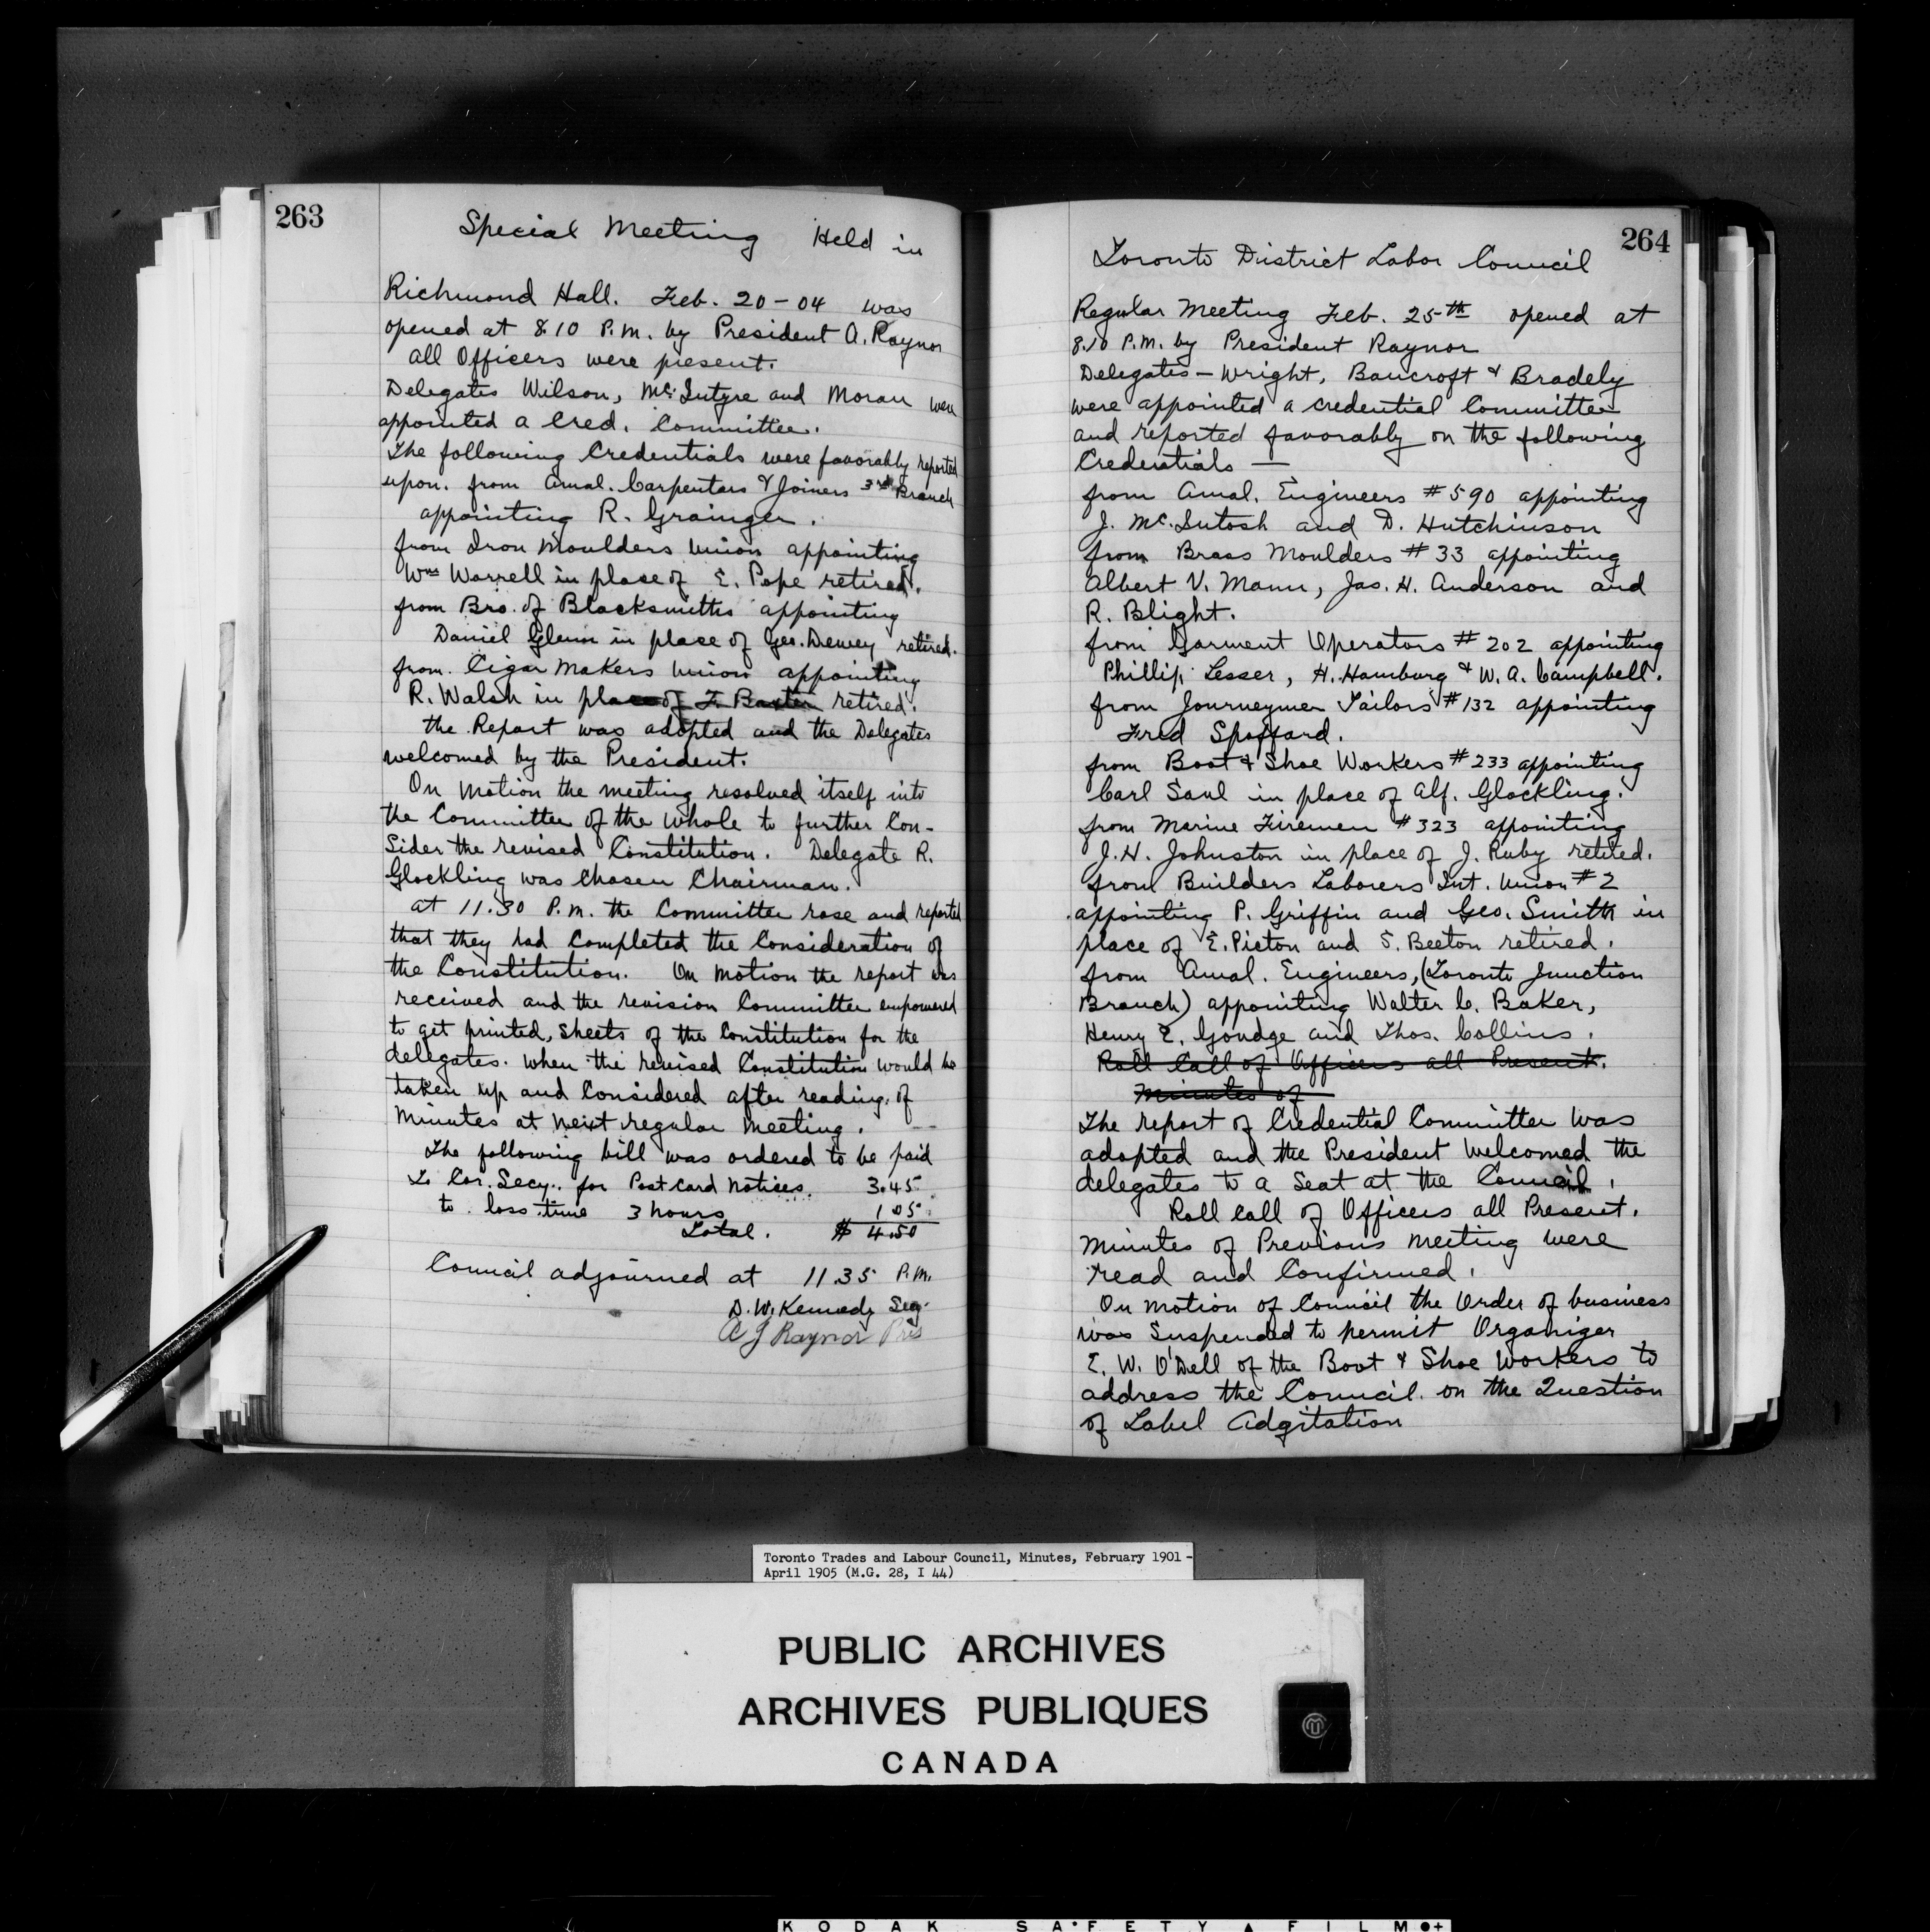 263
Special Meeting Held in
Richmond Hall. Feb. 20-04 was
opened at 8.10 P.M. by President A. Raynor
all Officers were present.
Delegates Wilson, Mc.Intyre and Moran were
appointed a Cred. Committee.
The following Credentials were favorably reported
upon. from Amal. Carpentars & Joiners 3rd Branch
appointing R. Grainger.
from Iron Moulders Union appointing
Wm Worrell in place of E. Pope retired.
from Bro. of Blacksmiths appointing
Daniel Glenn in place of Geo. Dewey retired.
from Cigar Makers Union appointing
R. Walsh in place of F. Baxter retired.
the Report was adopted and the Delegates
welcomed by the President.
On Motion the meeting resolved itself into
the Committee of the Whole to further Con-
sider the revised Constitution. Delegate R.
Glockling was Chosen Chairman.
at 11.30 P.M. the Committee rose and reported
that they had Completed the Consideration of
the Constitution. On Motion the report was
received and the revision Committee empowered
to get printed, sheets of the Constitution for the
delegates. when the revised Constitution would be
taken up and Considered after reading of
Minutes at next regular Meeting.
The following bill was ordered to be paid
To Cor. Secy. for Post Card Notices. 3.45
to loss time 3 hours 1.05
Total. $ 4.50
Council adjourned at 11.35 P.M.
D.W. Kennedy Secy.
A J Raynor Pres
264
Toronto District Labor Council
Regular Meeting Feb. 25th opened at
8.10 P.M. by President Raynor
Delegates - Wright, Bancroft & Bradely
were appointed a credential Committee
and reported favorably on the following
Credentials —
from Amal. Engineers #590 appointing
J. Mc.Intosh and D. Hutchinson
from Brass Moulders #33 appointing
Albert V. Mann, Jas. H. Anderson and
R. Blight.
from Garment Operators #202 appointing
Phillip Lesser, H. Hamburg & W. A. Campbell.
from Journeymen Tailors #132 appointing
Fred Spofford.
from Boot & Shoe Workers #233 appointing
Carl Saul in place of Alf. Glockling.
from Marine Firemen #323 appointing
J.H. Johnston in place of J. Ruby retired.
from Builders Laborers Int. Union #2
appointing P. Griffin and Geo. Smith in
place of E. Picton and S. Beeton retired.
from Amal. Engineers, (Toronto Junction
Branch) appointing Walter C. Baker,
Henry E. Goudge and Thos. Collins.
Roll Call of Officers all Present.
Minutes of
The report of Credential Committee was
adopted and the President Welcomed the
delegates to a Seat at the Council.
Roll Call of Officers all Present.
Minutes of Previous Meeting were
read and Confirmed.
On Motion of Council the Order of business
was Suspended to permit Organizer
E. W. O'Dell of the Boot & Shoe Workers to
address the Council on the Question
of Label Adgitation
Toronto Trades and Labour Council, Minutes, February 1901 -
April 1905 (M.G. 28, I 44)
PUBLIC ARCHIVES
ARCHIVES PUBLIQUES
CANADA
KODAK SAFETY FILM